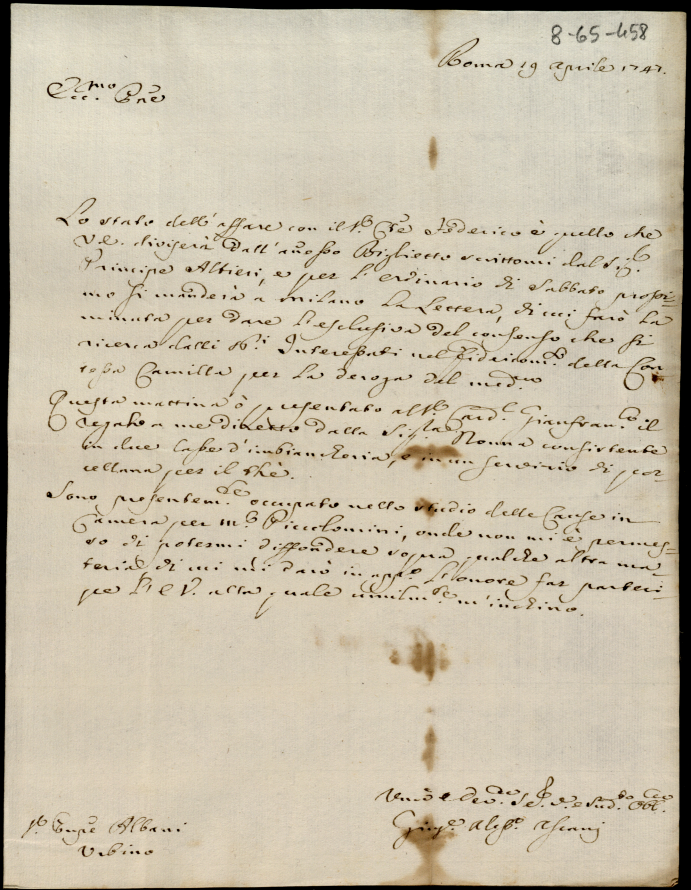 8-65-458
Roma 19 aprile 1747.
Ecc.mo Pne
Lo stato dell'affare con il S.r Federico è quello che
V.E. divigerà dall'annesso Biglietto scrittomi dal Sig.r
Principe Altieri, e per l'ordinario di Sabbato prossi-
mo si manderà a Milano la Lettera, di cui farò la
minuta per dare l'esclusiva del consenso che si
ricerca dalli SS.ri Interessati nel Fidricom.o della Con-
tessa Camilla per la deroga dal med.mo
Questa mattina ò presentato al S.r Card.l Gianfran.co il
regalo a me diretto dalla Sig.ra Nonna consistente
in due Casse d'imbiancheria, e in un servizio di por-
cellana per il thè.
Sono presentem.te occupato nello studio delle Cause in
Camera per M.r Piccolomini, onde non mi è permes-
so di potermi diffondere sopra qualche altra ma-
teria di cui mi darò in app.o l'onore far parteci-
pe l'E.V. alla quale umilm.te m'inchino.
S.r Albani
Urbino